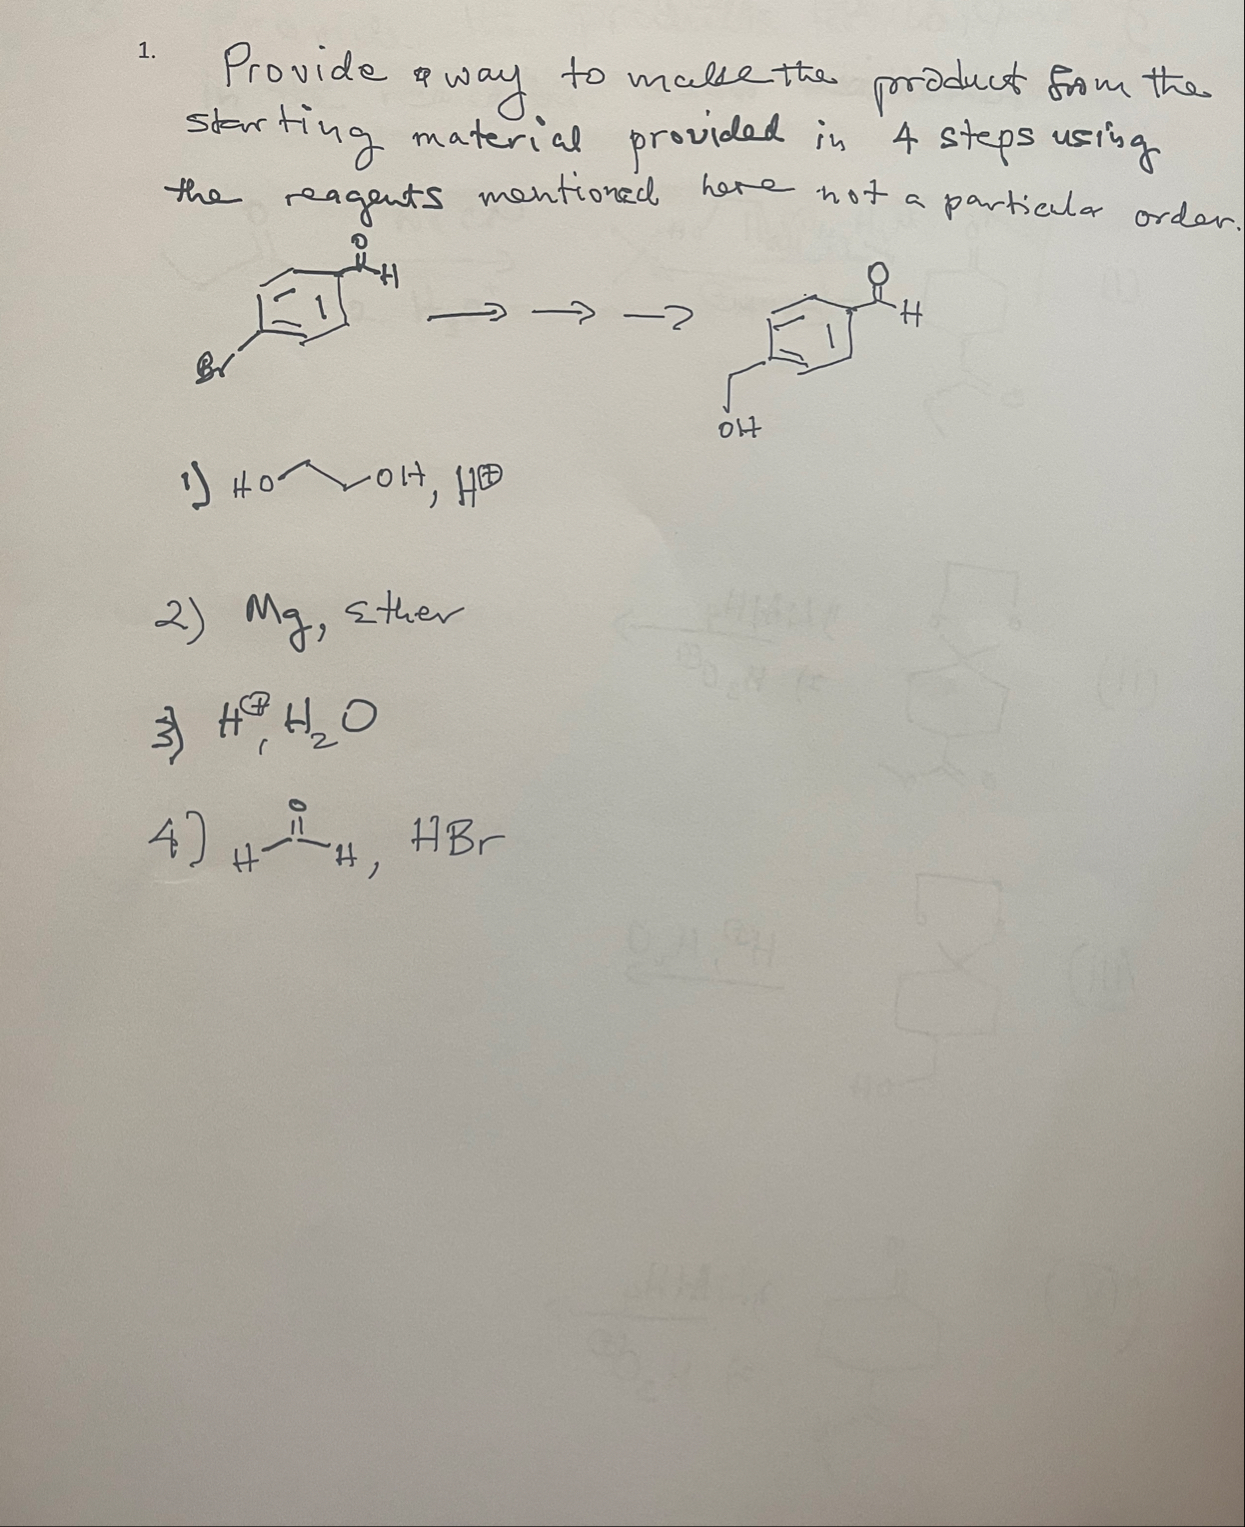 1. Provide a way to make the product from the
starting material provided in 4 steps using
the reagents mentioned here not a particular order.
O
H
Br
O
H
OH
1) HO OH, H⊕
2) Mg, Ether
3) H⊕, H₂O
O
4) H H, HBr